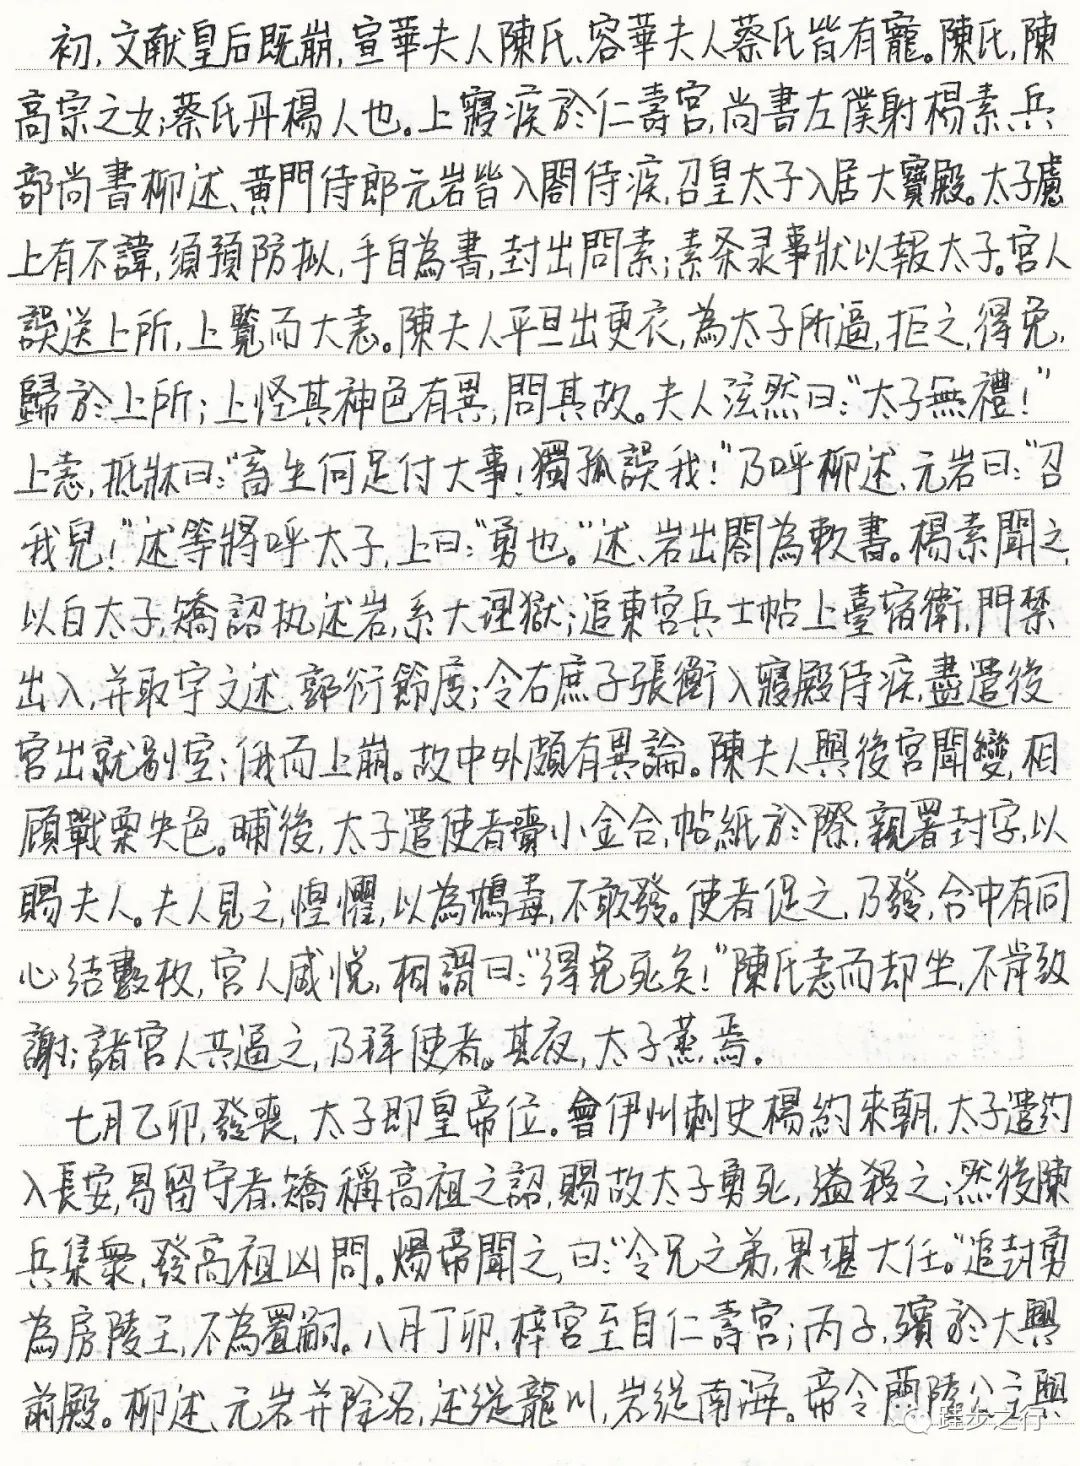 初，文献皇后既崩，宣華夫人陳氏、容華夫人蔡氏皆有寵。陳氏，陳
高宗之女；蔡氏丹楊人也。上寢疾於仁壽宮，尚書左僕射楊素、兵
部尚書柳述、黃門侍郎元岩皆入閣侍疾，召皇太子入居大寶殿。太子慮
上有不諱，須預防拟，手自為書，封出問素；素条录事狀以報太子。宮人
誤送上所，上覽而大恚。陳夫人平旦出更衣，為太子所逼，拒之，得免，
歸於上所；上怪其神色有異，問其故。夫人泫然曰：“太子無禮！”
上恚，抵牀曰：“畜生何足付大事！獨孤誤我！”乃呼柳述、元岩曰：“召
我兒！”述等將呼太子，上曰：“勇也。”述、岩出閣為敕書。楊素聞之，
以白太子，矯詔执述岩，系大理獄；追東宮兵士帖上臺宿衛，門禁
出入，并取宇文述、郭衍節度；令右庶子張衡入寢殿侍疾，盡遣後
宮出就别室；俄而上崩。故中外頗有異論。陳夫人與後宮聞變，相
顧戰栗失色。晡後，太子遣使者賫小金合，帖紙於際，親署封字，以
賜夫人。夫人見之，惶懼，以為鴆毒，不敢發。使者促之，乃發，合中有同
心结數枚，宮人咸悅，相謂曰：“得免死矣！”陳氏恚而却坐，不肯致
謝；諸宮人共逼之，乃拜使者。其夜，太子蒸焉。
七月乙卯，發喪，太子即皇帝位。會伊州刺史楊約來朝，太子遣約
入長安，易留守者，矯稱高祖之詔，賜故太子勇死，縊殺之；然後陳
兵集衆，發高祖凶問。煬帝聞之，曰：“令兄之弟，果堪大任。”追封勇
為房陵王，不為置嗣。八月丁卯，梓宮至自仁壽宮；丙子，殯於大興
前殿。柳述、元岩并除名，述徙龍川，岩徙南海。帝令蘭陵公主與
跬步之行